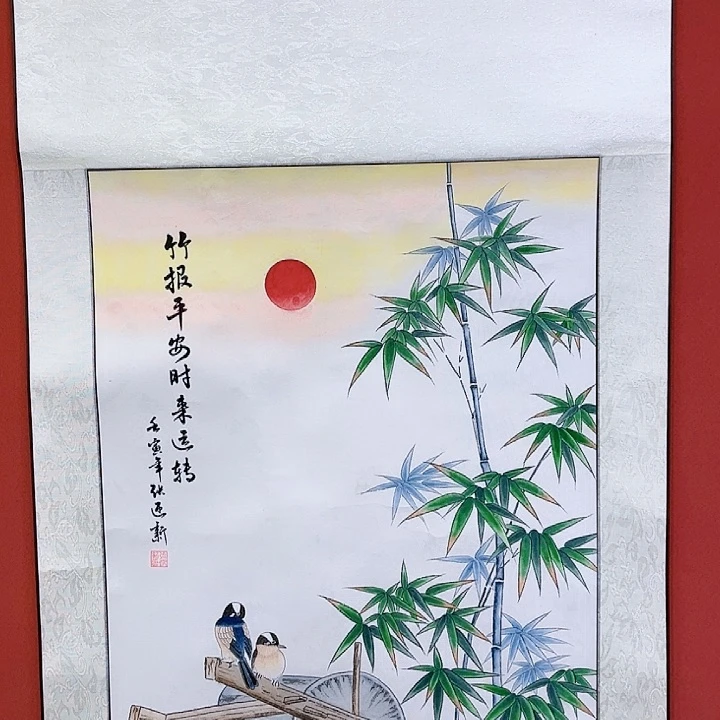 竹报平安时来运转
壬寅年张迎新